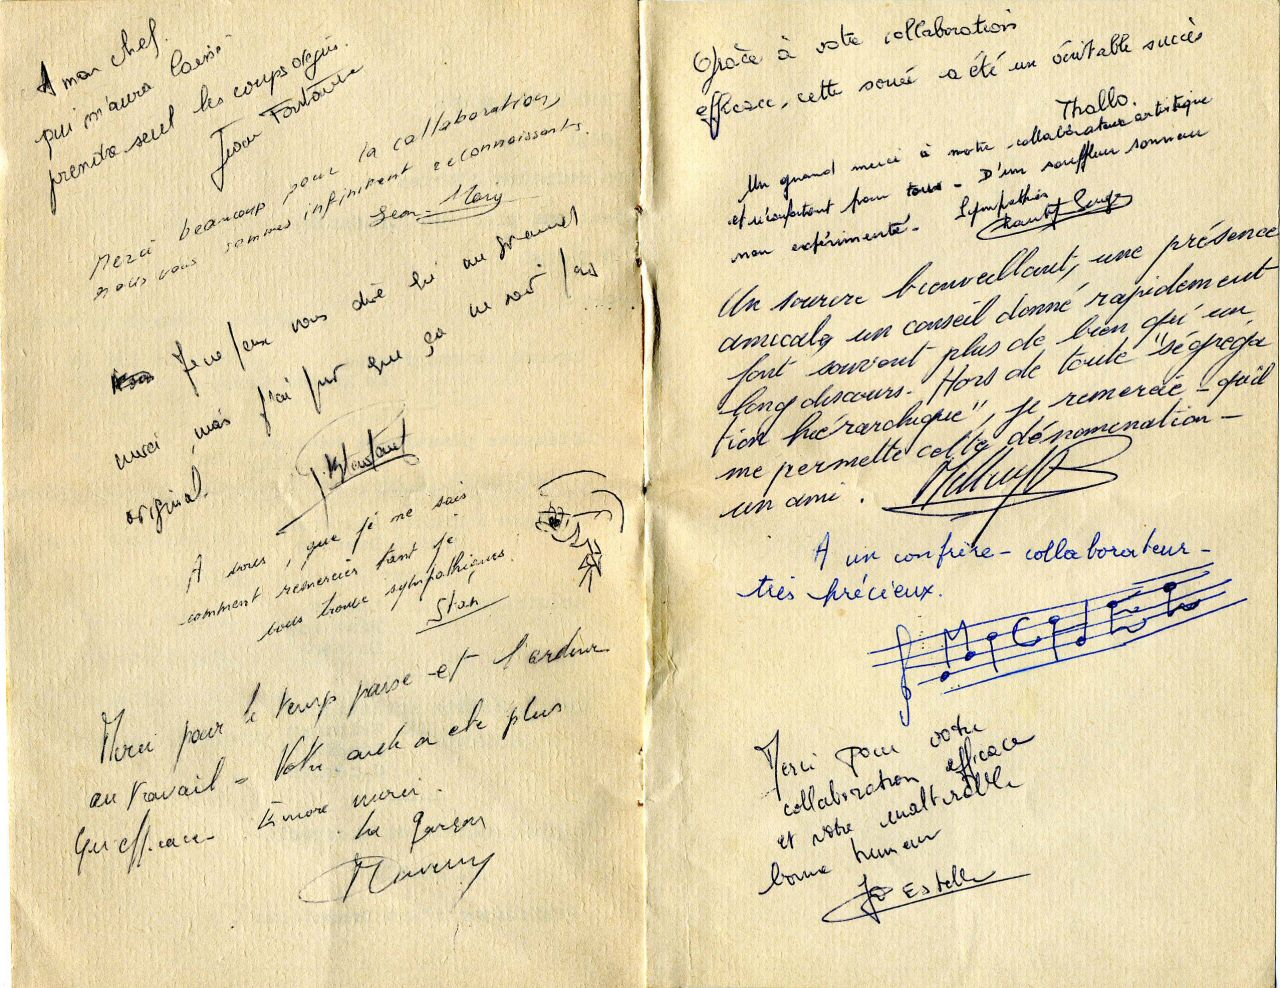 A mon chef.
qui m'aura laissé
prendre seul les coups orgues.
Jean Fontaine
Merci beaucoup pour la collaboration
nous vous sommes infiniment reconnaissants.
Jean-Mary
Je ne peux vous dire ici un grand
merci, mais j'ai peur que ça ne soit pas
original.
A vous, que je ne sais
comment remercier tant je
vous trouve sympathiques.
Stan
Merci pour le temps passé et l'ardeur
au travail - Votre aide a été plus
qu'efficace - Encore merci.
Le Garçon
Grâce à votre collaboration
efficace, cette soirée a été un véritable succès
Thallo.
Un grand merci à notre collaborateur artistique
et réconfortant pour tous - D'un souffleur sonneur
non expérimenté - Sympathies
Un sourire bienveillant, une présence
amicale, un conseil donné rapidement
font souvent plus de bien qu'un
long discours. Hors de toute "ségréga
tion hiérarchique", je remercie - qu'il
me permette cette dénomination -
un ami.
A un confrère - collaborateur -
très précieux.
M C
Merci pour votre
collaboration efficace
et votre inaltérable
bonne humeur
Jo Estelle